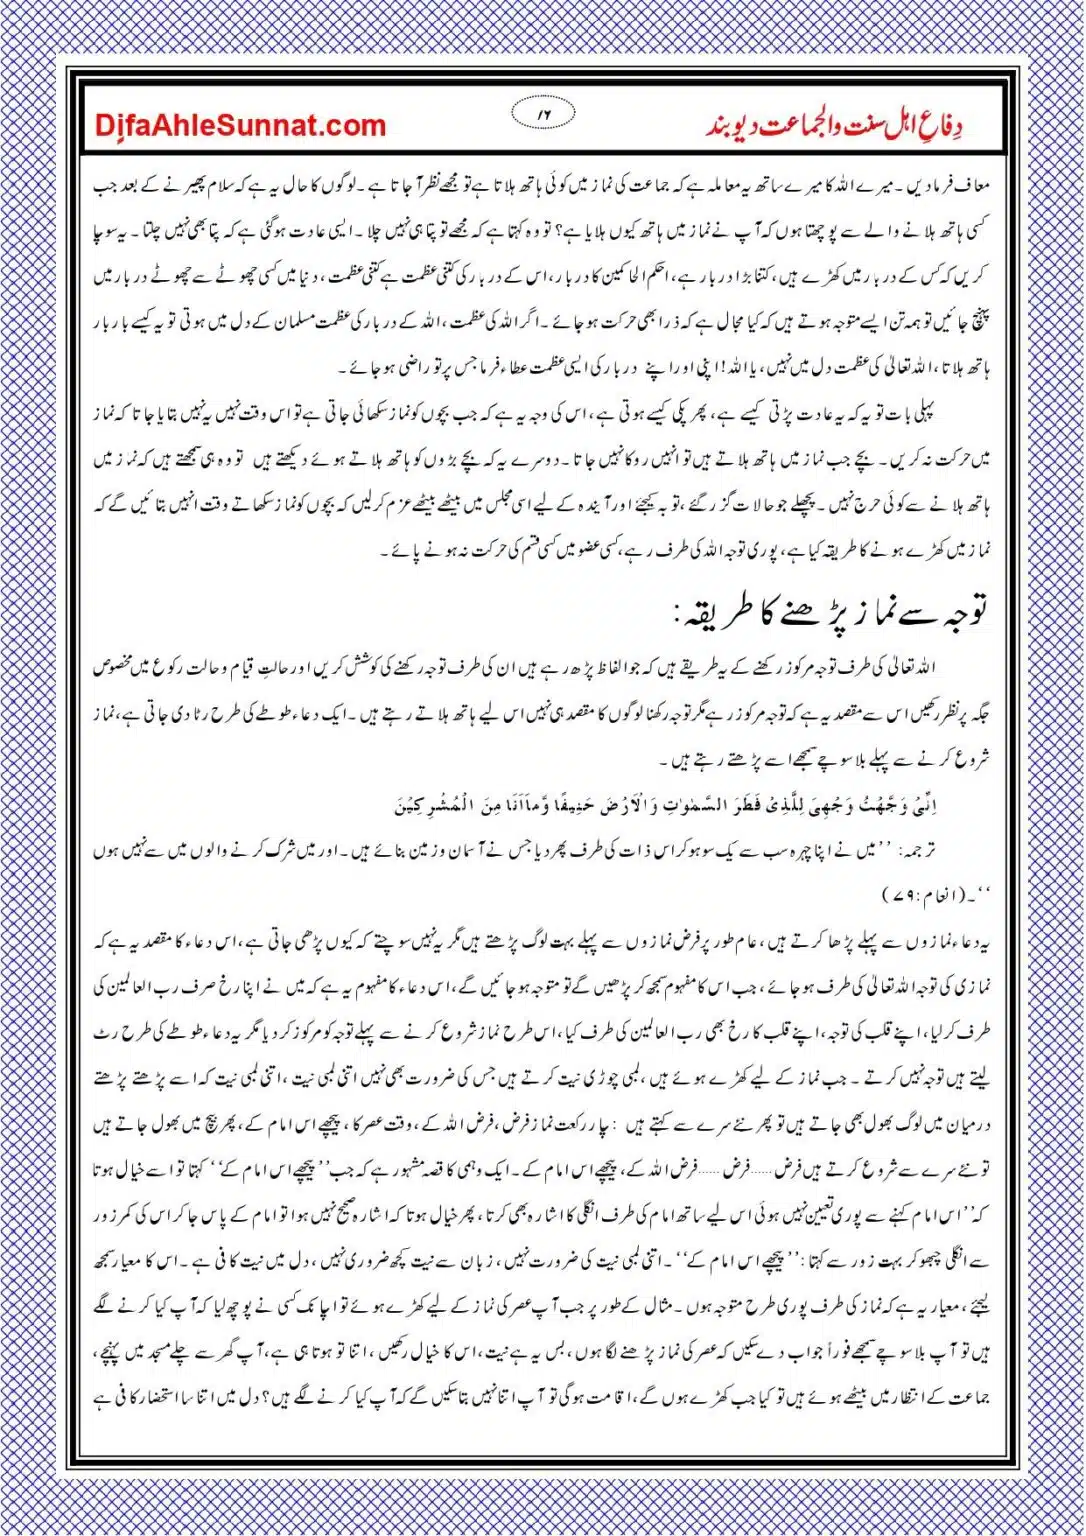 DifaAhleSunnat.com
۱۶
دِفاعِ اہل سنت والجماعت دیوبند
معاف فرمادیں ۔ میرے اللہ کا میرے ساتھ یہ معاملہ ہے کہ جماعت کی نماز میں کوئی ہاتھ ہلاتا ہے تو مجھے نظر آجاتا ہے ۔ لوگوں کا حال یہ ہے کہ سلام پھیرنے کے بعد جب
کسی ہاتھ ہلانے والے سے پوچھتا ہوں کہ آپ نے نماز میں ہاتھ کیوں ہلایا ہے؟ تو وہ کہتا ہے کہ مجھے تو پتا ہی نہیں چلا ۔ ایسی عادت ہوگئی ہے کہ پتا بھی نہیں چلتا ۔ یہ سوچا
کریں کہ کس کے دربار میں کھڑے ہیں، کتنا بڑا دربار ہے، احکم الحاکمین کا دربار، اس کے دربار کی کتنی عظمت ہے کتنی عظمت ، دنیا میں کسی چھوٹے سے چھوٹے دربار میں
پہنچ جائیں تو ہمہ تن ایسے متوجہ ہوتے ہیں کہ کیا مجال ہے کہ ذرا بھی حرکت ہوجائے ۔ اگر اللہ کی عظمت ، اللہ کے دربار کی عظمت مسلمان کے دل میں ہوتی تو یہ کیسے بار بار
ہاتھ ہلاتا ، اللہ تعالیٰ کی عظمت دل میں نہیں ، یا اللہ! اپنی اور اپنے دربار کی ایسی عظمت عطاء فرما جس پر تو راضی ہوجائے ۔
پہلی بات تو یہ کہ یہ عادت پڑتی کیسے ہے، پھر پکی کیسے ہوتی ہے ، اس کی وجہ یہ ہے کہ جب بچوں کو نماز سکھائی جاتی ہے تو اس وقت نہیں یہ نہیں بتایا جاتا کہ نماز
میں حرکت نہ کریں ۔ بچے جب نماز میں ہاتھ ہلاتے ہیں تو انہیں روکا نہیں جاتا ۔ دوسرے یہ کہ بچے بڑوں کو ہاتھ ہلاتے ہوئے دیکھتے ہیں تو وہ ہی سمجھتے ہیں کہ نماز میں
ہاتھ ہلانے سے کوئی حرج نہیں ۔ پچھلے جو حالات گزر گئے ، توبہ کیجئے اور آیندہ کے لیے اسی مجلس میں بیٹھے بیٹھے عزم کرلیں کہ بچوں کو نماز سکھاتے وقت انہیں بتائیں گے کہ
نماز میں کھڑے ہونے کا طریقہ کیا ہے، پوری توجہ اللہ کی طرف رہے، کسی عضو میں کسی قسم کی حرکت نہ ہونے پائے ۔
توجہ سے نماز پڑھنے کا طریقہ:
اللہ تعالیٰ کی طرف توجہ مرکوز رکھنے کے یہ طریقے ہیں کہ جو الفاظ پڑھ رہے ہیں ان کی طرف توجہ رکھنے کی کوشش کریں اور حالتِ قیام و حالت رکوع میں مخصوص
جگہ پر نظر رکھیں اس سے مقصد یہ ہے کہ توجہ مرکوز رہے مگر توجہ رکھنا لوگوں کا مقصد ہی نہیں اس لیے ہاتھ ہلاتے رہتے ہیں ۔ ایک دعاء طوطے کی طرح رٹا دی جاتی ہے، نماز
شروع کرنے سے پہلے بلا سوچے سمجھے اسے پڑھتے رہتے ہیں ۔
اِنِّیْ وَجَّهْتُ وَجْهِیَ لِلَّذِیْ فَطَرَ السَّمٰوٰتِ وَالْاَرْضَ حَنِیفًا وَّمَآاَنَا مِنَ الْمُشْرِکِیْنَ
ترجمہ: ’’میں نے اپنا چہرہ سب سے یک سو ہوکر اس ذات کی طرف پھر دیا جس نے آسمان و زمین بنائے ہیں ۔ اور میں شرک کرنے والوں میں سے نہیں ہوں
‘‘۔ (انعام: ۷۹)
یہ دعاء نمازوں سے پہلے پڑھا کرتے ہیں ، عام طور پر فرض نمازوں سے پہلے بہت لوگ پڑھتے ہیں مگر یہ نہیں سوچتے کہ کیوں پڑھی جاتی ہے، اس دعاء کا مقصد یہ ہے کہ
نمازی کی توجہ اللہ تعالیٰ کی طرف ہوجائے ، جب اس کا مفہوم سمجھ کر پڑھیں گے تو متوجہ ہوجائیں گے ، اس دعاء کا مفہوم یہ ہے کہ میں نے اپنا رخ صرف رب العالمین کی
طرف کرلیا ، اپنے قلب کی توجہ، اپنے قلب کا رخ بھی رب العالمین کی طرف کیا ، اس طرح نماز شروع کرنے سے پہلے توجہ کو مرکوز کردیا مگر یہ دعاء طوطے کی طرح رٹ
لیتے ہیں توجہ نہیں کرتے ۔ جب نماز کے لیے کھڑے ہوئے ہیں ، لمبی چوڑی نیت کرتے ہیں جس کی ضرورت بھی نہیں اتنی لمبی نیت ، اتنی لمبی نیت کہ اسے پڑھتے پڑھتے
درمیان میں لوگ بھول بھی جاتے ہیں تو پھر نئے سرے سے کہتے ہیں : چار رکعت نماز فرض ، فرض اللہ کے، وقت عصر کا ، پیچھے اس امام کے، پھر بیچ میں بھول جاتے ہیں
تو نئے سرے سے شروع کرتے ہیں فرض ...... فرض ...... فرض اللہ کے، پیچھے اس امام کے ۔ ایک وہمی کا قصہ مشہور ہے کہ جب ’’پیچھے اس امام کے‘‘ کہتا تو اسے خیال ہوتا
کہ ’’اس امام کہنے سے پوری تعیین نہیں ہوئی اس لیے ساتھ امام کی طرف انگلی کا اشارہ بھی کرتا ، پھر خیال ہوتا کہ اشارہ صحیح نہیں ہوا تو امام کے پاس جا کر اس کی کمر زور
سے انگلی چبھو کر بہت زور سے کہتا : ’’پیچھے اس امام کے‘‘ ۔ اتنی لمبی نیت کی ضرورت نہیں ، زبان سے نیت کچھ ضروری نہیں ، دل میں نیت کافی ہے ۔ اس کا معیار سمجھ
لیجئے ، معیار یہ ہے کہ نماز کی طرف پوری طرح متوجہ ہوں ۔ مثال کے طور پر جب آپ عصر کی نماز کے لیے کھڑے ہوئے تو اچانک کسی نے پوچھ لیا کہ آپ کیا کرنے لگے
ہیں تو آپ بلا سوچے سمجھے فوراً جواب دے سکیں کہ عصر کی نماز پڑھنے لگا ہوں ، بس یہ ہے نیت، اس کا خیال رکھیں ، اتنا تو ہوتا ہی ہے، آپ گھر سے چلے مسجد میں پہنچے،
جماعت کے انتظار میں بیٹھے ہوئے ہیں تو کیا جب کھڑے ہوں گے ، اقامت ہوگی تو آپ اتنا نہیں بتا سکیں گے کہ آپ کیا کرنے لگے ہیں؟ دل میں اتنا سا استحضار کافی ہے